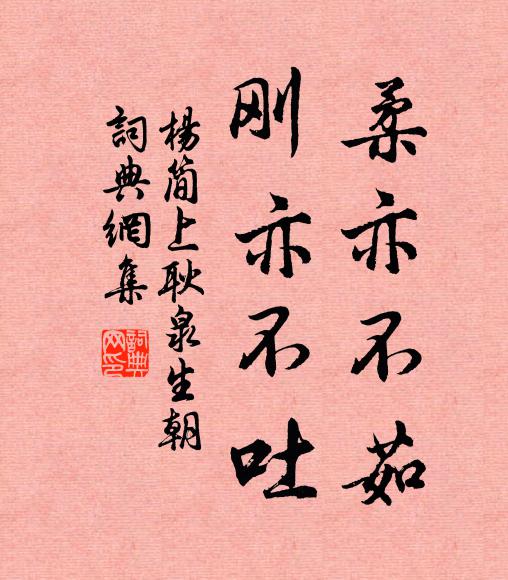 柔亦不茹
刚亦不吐
楊简上耿泉生朝
詞典網集
詞典网印